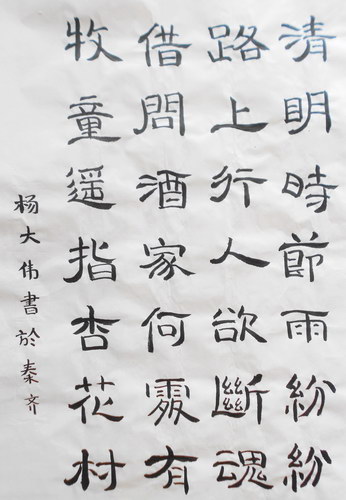 清明時節雨紛紛
路上行人欲斷魂
借問酒家何處有
牧童遥指杏花村
杨大伟書於秦齐